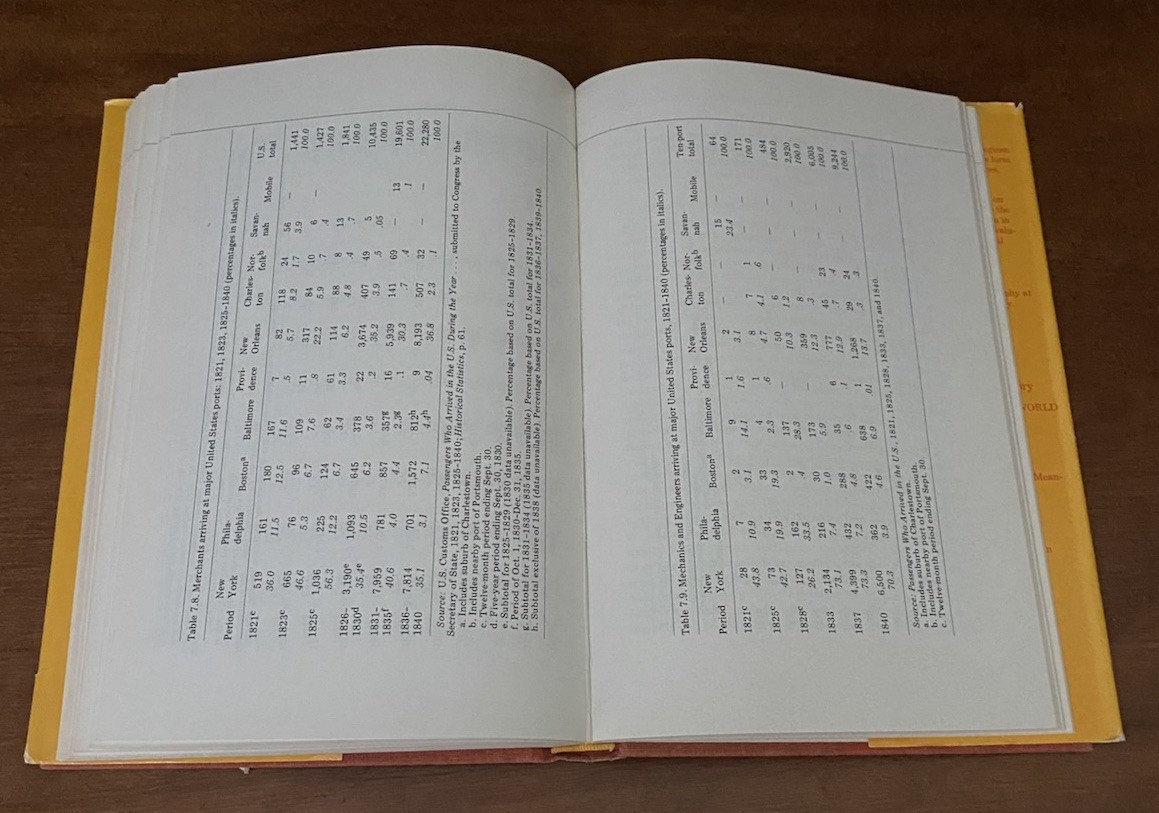 Table 7.8. Merchants arriving at major United States ports: 1821, 1823, 1825–1840 (percentages in italics).
Period New York Phila-delphia Bostonᵃ Baltimore Provi-dence New Orleans Charles-ton Nor-folkᵇ Savan-nah Mobile U.S. total
1821ᶜ 519 161 180 167 7 82 118 24 56 — 1,441
36.0 11.5 12.5 11.6 .5 5.7 8.2 1.7 3.9 100.0
1823ᶜ 665 76 96 109 11 317 84 10 6 — 1,427
46.6 5.3 6.7 7.6 .8 22.2 5.9 .7 .4 100.0
1825ᶜ 1,036 225 124 62 61 114 88 8 13 1,841
56.3 12.2 6.7 3.4 3.3 6.2 4.8 .4 .7 100.0
1826– 3,190ᵉ 1,093 645 378 22 3,674 407 49 5 10,435
1830ᵈ 35.4ᵉ 10.5 6.2 3.6 .2 35.2 3.9 .5 .05 100.0
1831– 7,959 781 857 357ᵍ 16 5,939 141 69 — 13 19,601
1835ᶠ 40.6 4.0 4.4 2.3ᵍ .1 30.3 .7 .4 .1 100.0
1836– 7,814 701 1,572 812ʰ 9 8,193 507 32 — — 22,280
1840 35.1 3.1 7.1 4.4ʰ .04 36.8 2.3 .1 100.0
Source: U.S. Customs Office, Passengers Who Arrived in the U.S. During the Year . . . , submitted to Congress by the
Secretary of State, 1821, 1823, 1825–1840; Historical Statistics, p. 61.
a. Includes suburb of Charlestown.
b. Includes nearby port of Portsmouth.
c. Twelve-month period ending Sept. 30.
d. Five-year period ending Sept. 30, 1830.
e. Subtotal for 1825–1829 (1830 data unavailable). Percentage based on U.S. total for 1825–1829.
f. Period of Oct. 1, 1830–Dec. 31, 1835.
g. Subtotal for 1831–1834 (1835 data unavailable). Percentage based on U.S. total for 1831–1834.
h. Subtotal exclusive of 1838 (data unavailable). Percentage based on U.S. total for 1836–1837, 1839–1840.
Table 7.9. Mechanics and Engineers arriving at major United States ports, 1821–1840 (percentages in italics).
Period New York Phila-delphia Bostonᵃ Baltimore Provi-dence New Orleans Charles-ton Nor-folkᵇ Savan-nah Mobile Ten-port total
1821ᶜ 28 7 2 9 1 2 — — 15 — 64
43.8 10.9 3.1 14.1 1.6 3.1 23.4 100.0
1825ᶜ 73 34 33 4 1 8 7 1 — — 171
42.7 19.9 19.3 2.3 .6 4.7 4.1 .6 100.0
1828ᶜ 127 162 2 137 — 50 6 — — — 484
26.2 33.5 .4 28.3 10.3 1.2 100.0
1833 2,134 216 30 173 — 359 8 — — — 2,920
73.1 7.4 1.0 5.9 12.3 .3 100.0
1837 4,399 432 288 35 6 777 45 23 — — 6,005
73.3 7.2 4.8 .6 .1 12.9 .7 .4 100.0
1840 6,500 362 422 638 1 1,268 29 24 — — 9,244
70.3 3.9 4.6 6.9 .01 13.7 .3 .3 100.0
Source: Passengers Who Arrived in the U.S., 1821, 1825, 1828, 1833, 1837, and 1840.
a. Includes suburb of Charlestown.
b. Includes nearby port of Portsmouth.
c. Twelve-month period ending Sept. 30.
WORLD